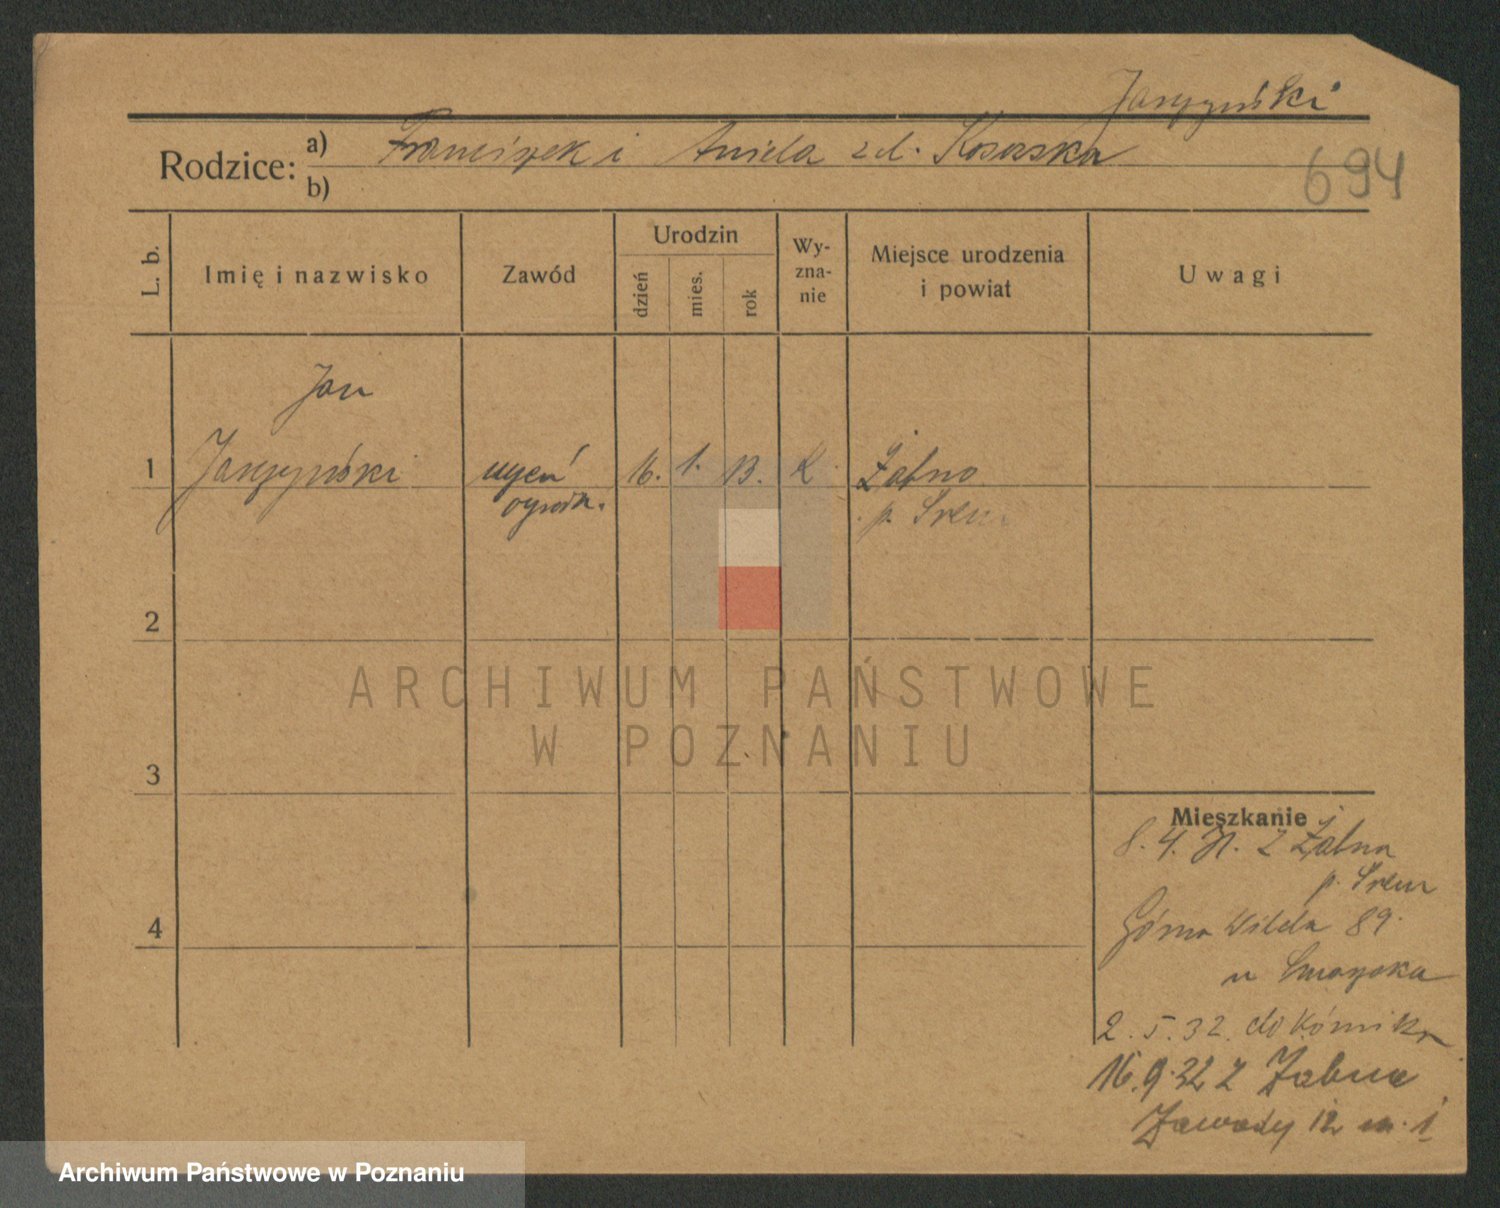 Jaszyński
Rodzice: a) Franciszek i Aniela zd. Kosarska
b)
694
L. b.
Imię i nazwisko
Zawód
Urodzin
dzień
mies.
rok
Wy-
zna-
nie
Miejsce urodzenia
i powiat
Uwagi
Jan
1 Jaszyński uczeń 16. 1. 13. K. Żabno
ogrodn. p. Śrem
2
ARCHIWUM PAŃSTWOWE
W POZNANIU
3
Mieszkanie
8. 4. 31. z Żabna
p. Śrem
4
Górna Wilda 89.
u
2. 5. 32. do Kórnika
16. 9. 32 z Żabna
Zawady 12 m. 1
Archiwum Państwowe w Poznaniu